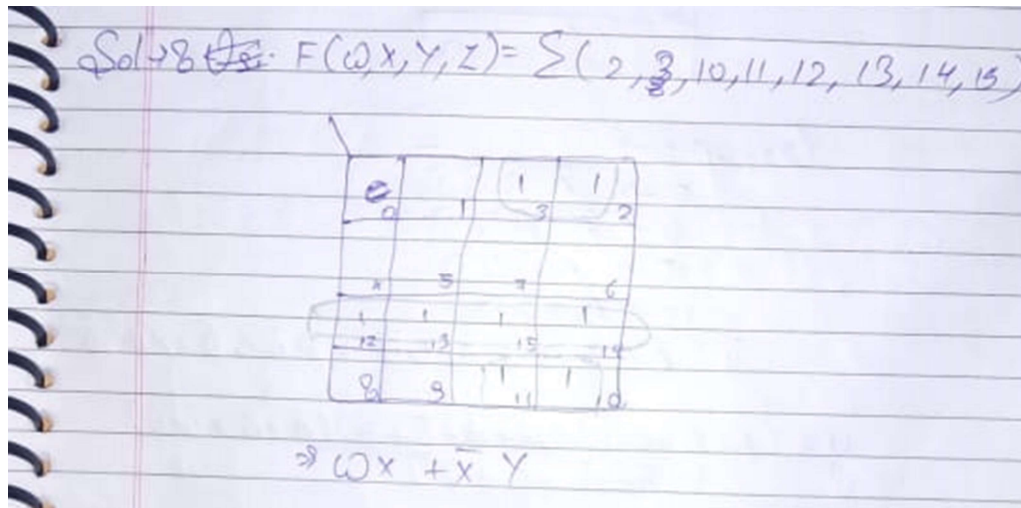 Sol → 8 F(W,X,Y,Z)= Σ(2,3,10,11,12,13,14,15)
0 1 1 3 1 2
4 5 7 6
1 1 1 1
12 13 15 14
8 9 1 11 1 10
⇒ WX + X̅ Y